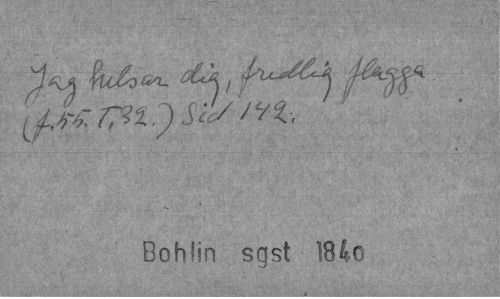 Jag helsar dig, fredlig flagga.
(f.55. T, 32.) Sid 142.
Bohlin sgst 1840